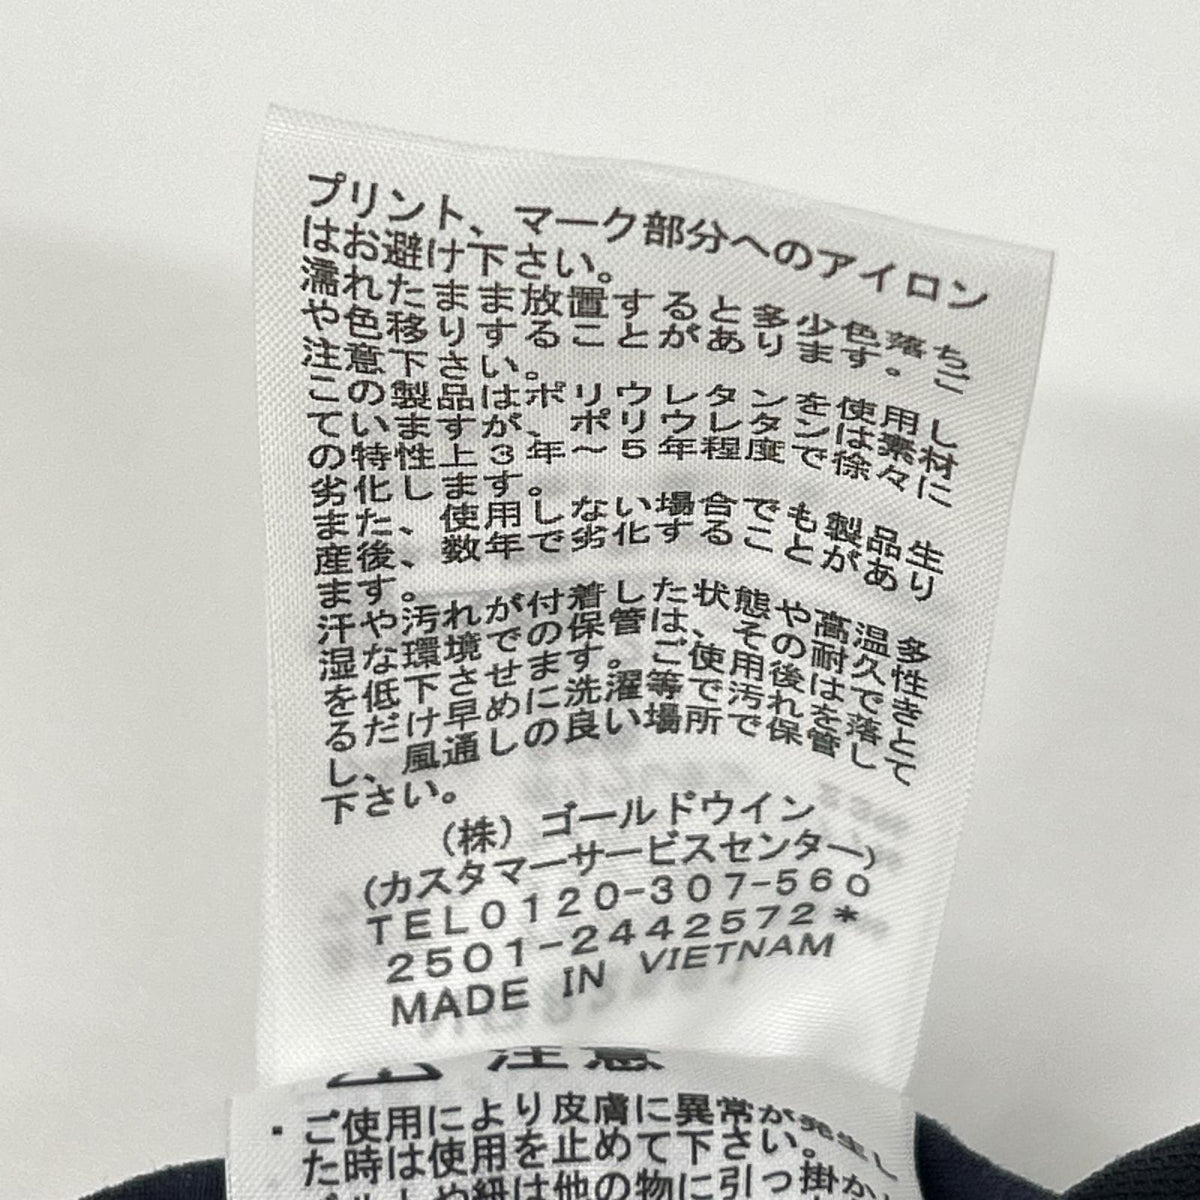 プリント、マーク部分へのアイロン
はお避け下さい。
濡れたまま放置すると多少色落ち
や色移りすることがあります。ご
注意下さい。
この製品はポリウレタンを使用し
ていますが、ポリウレタンは素材
の特性上３年～５年程度で徐々に
劣化します。
また、使用しない場合でも製品生
産後、数年で劣化することがあり
ます。
汗や汚れが付着した状態や高温多
湿な環境での保管は、その耐久性
を低下させます。ご使用後はできる
だけ早めに洗濯等で汚れを落と
し、風通しの良い場所で保管して
下さい。
(株) ゴールドウイン
(カスタマーサービスセンター)
TEL0120-307-560
2501-2442572*
MADE IN VIETNAM
注意
・ご使用により皮膚に異常が発生し
た時は使用を止めて下さい。
や紐は他の物に引っ掛か